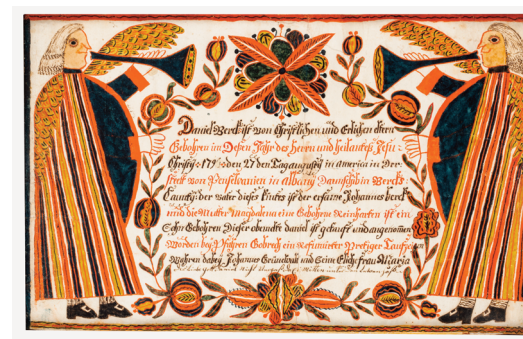 Daniel Berck ist von Christlichen und Erlichen eltern
Gebohren im Dessen Jahr des Herrn und heilandes Jesu
Christy 179 den 27 den Tag augusty in america in Der
staat von Pensilvanien in albany Daunschib Bercks
Caunty der vater dieses kindes ist der ersame Johannes berck
und die Mutter Magdalena eine Gebohrne Reinharten ist ein
Sohn Gebohren Dieser ebenelte daniel ist getauft und angenommen
Worden bey Pfahren Gobrech ein Refomirter Prediger Taufzeugen
Wahren dabey Johannes Gründwalt und Seine Eliche frau Maria